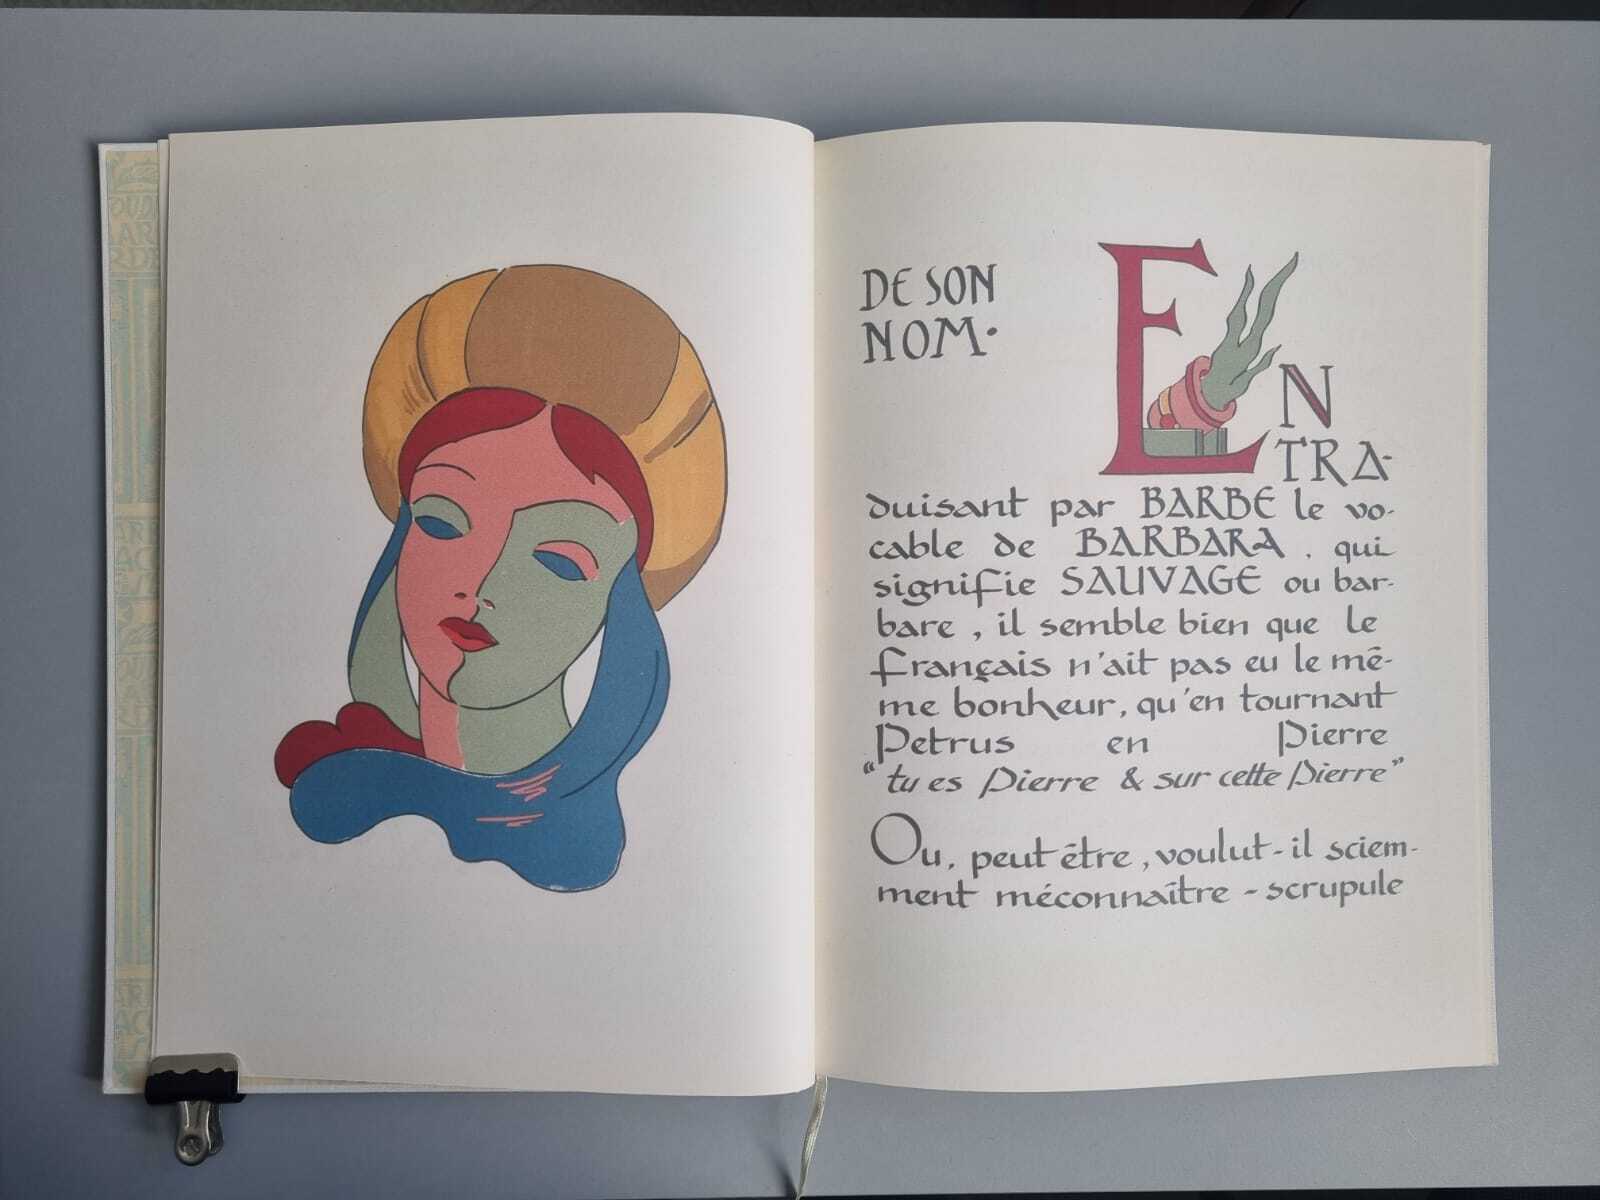 DE SON
NOM·
EN
TRA-
duisant par BARBE le vo-
cable de BARBARA, qui
signifie SAUVAGE ou bar-
bare, il semble bien que le
français n'ait pas eu le mê-
me bonheur, qu'en tournant
Petrus en Pierre
"tu es Pierre & sur cette Pierre"
Ou, peut être, voulut-il sciem-
ment méconnaître - scrupule